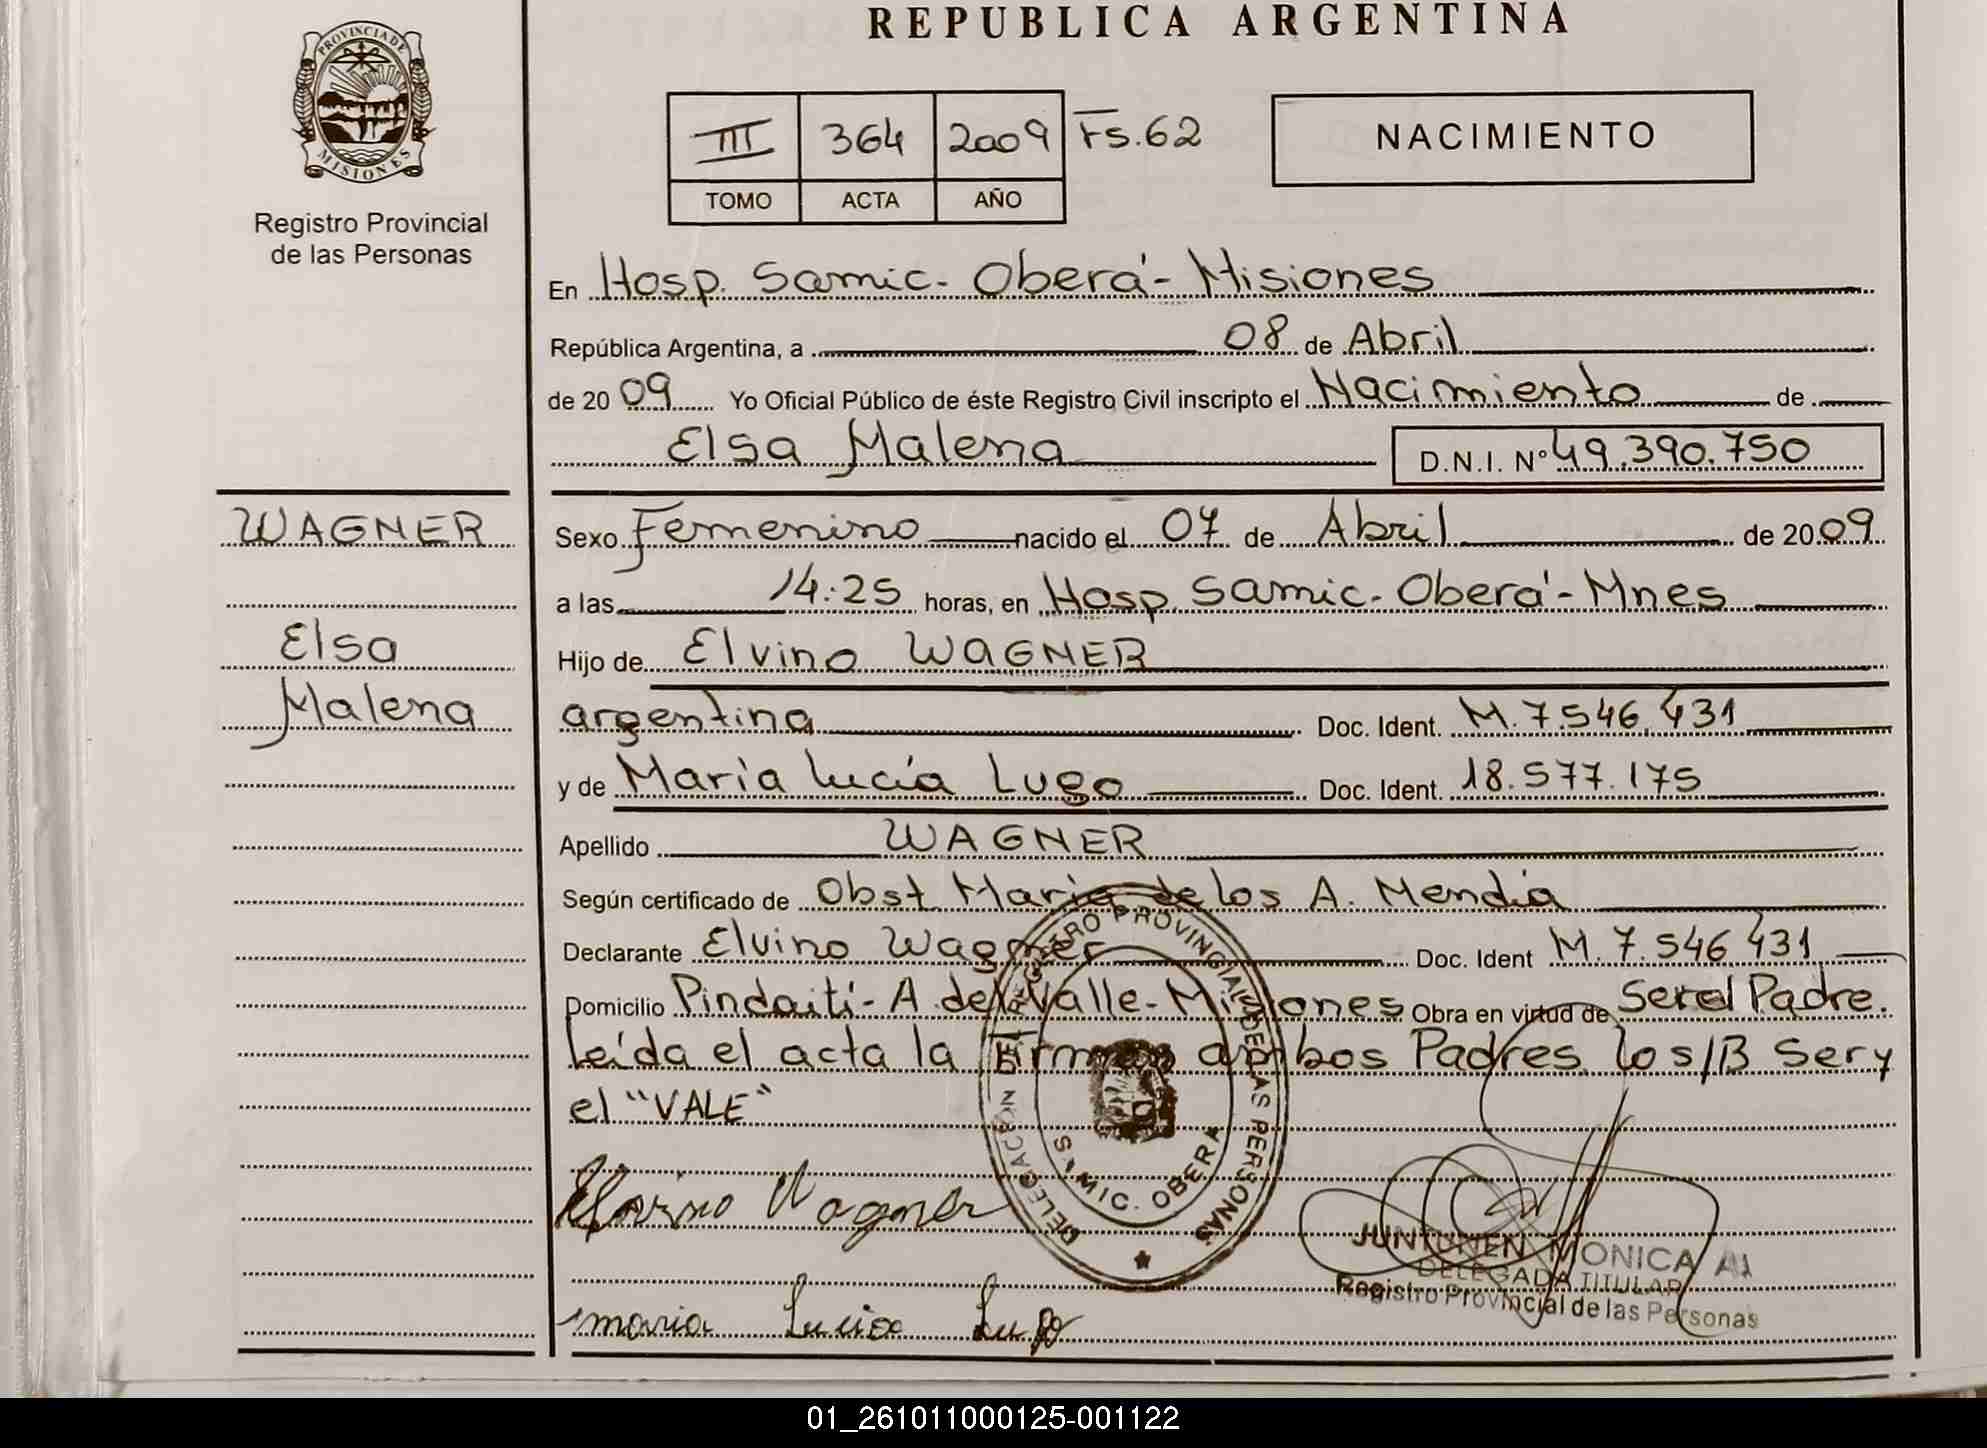 REPUBLICA ARGENTINA
PROVINCIA DE
MISIONES
Registro Provincial
de las Personas
III 364 2009 Fs.62
TOMO ACTA AÑO
NACIMIENTO
En Hosp. Samic. Oberá - Misiones
República Argentina, a 08 de Abril
de 2009 Yo Oficial Público de éste Registro Civil inscripto el Nacimiento de
Elsa Malena D.N.I. Nº 49.390.750
WAGNER
Elsa
Malena
Sexo Femenino nacido el 07 de Abril de 2009
a las 14:25 horas, en Hosp. Samic. Oberá - Mnes
Hijo de Elvino WAGNER
argentina Doc. Ident. M.7.546.431
y de María Lucía Lugo Doc. Ident. 18.577.175
Apellido WAGNER
Según certificado de Obst. Maria de los A. Mendia
Declarante Elvino Wagner Doc. Ident M.7.546.431
Domicilio Pindaití - A. del Valle - Misiones Obra en virtud de Ser el Padre.
Leída el acta la firman ambos Padres. lo s/B Ser y
el "VALE"
DELEGACION DEL REGISTRO PROVINCIAL DE LAS PERSONAS
SAMIC. OBERA
Wagner
maria Lucia Lugo
JUNTUNEN MONICA
DELEGADA TITULAR
Registro Provincial de las Personas
01_261011000125-001122